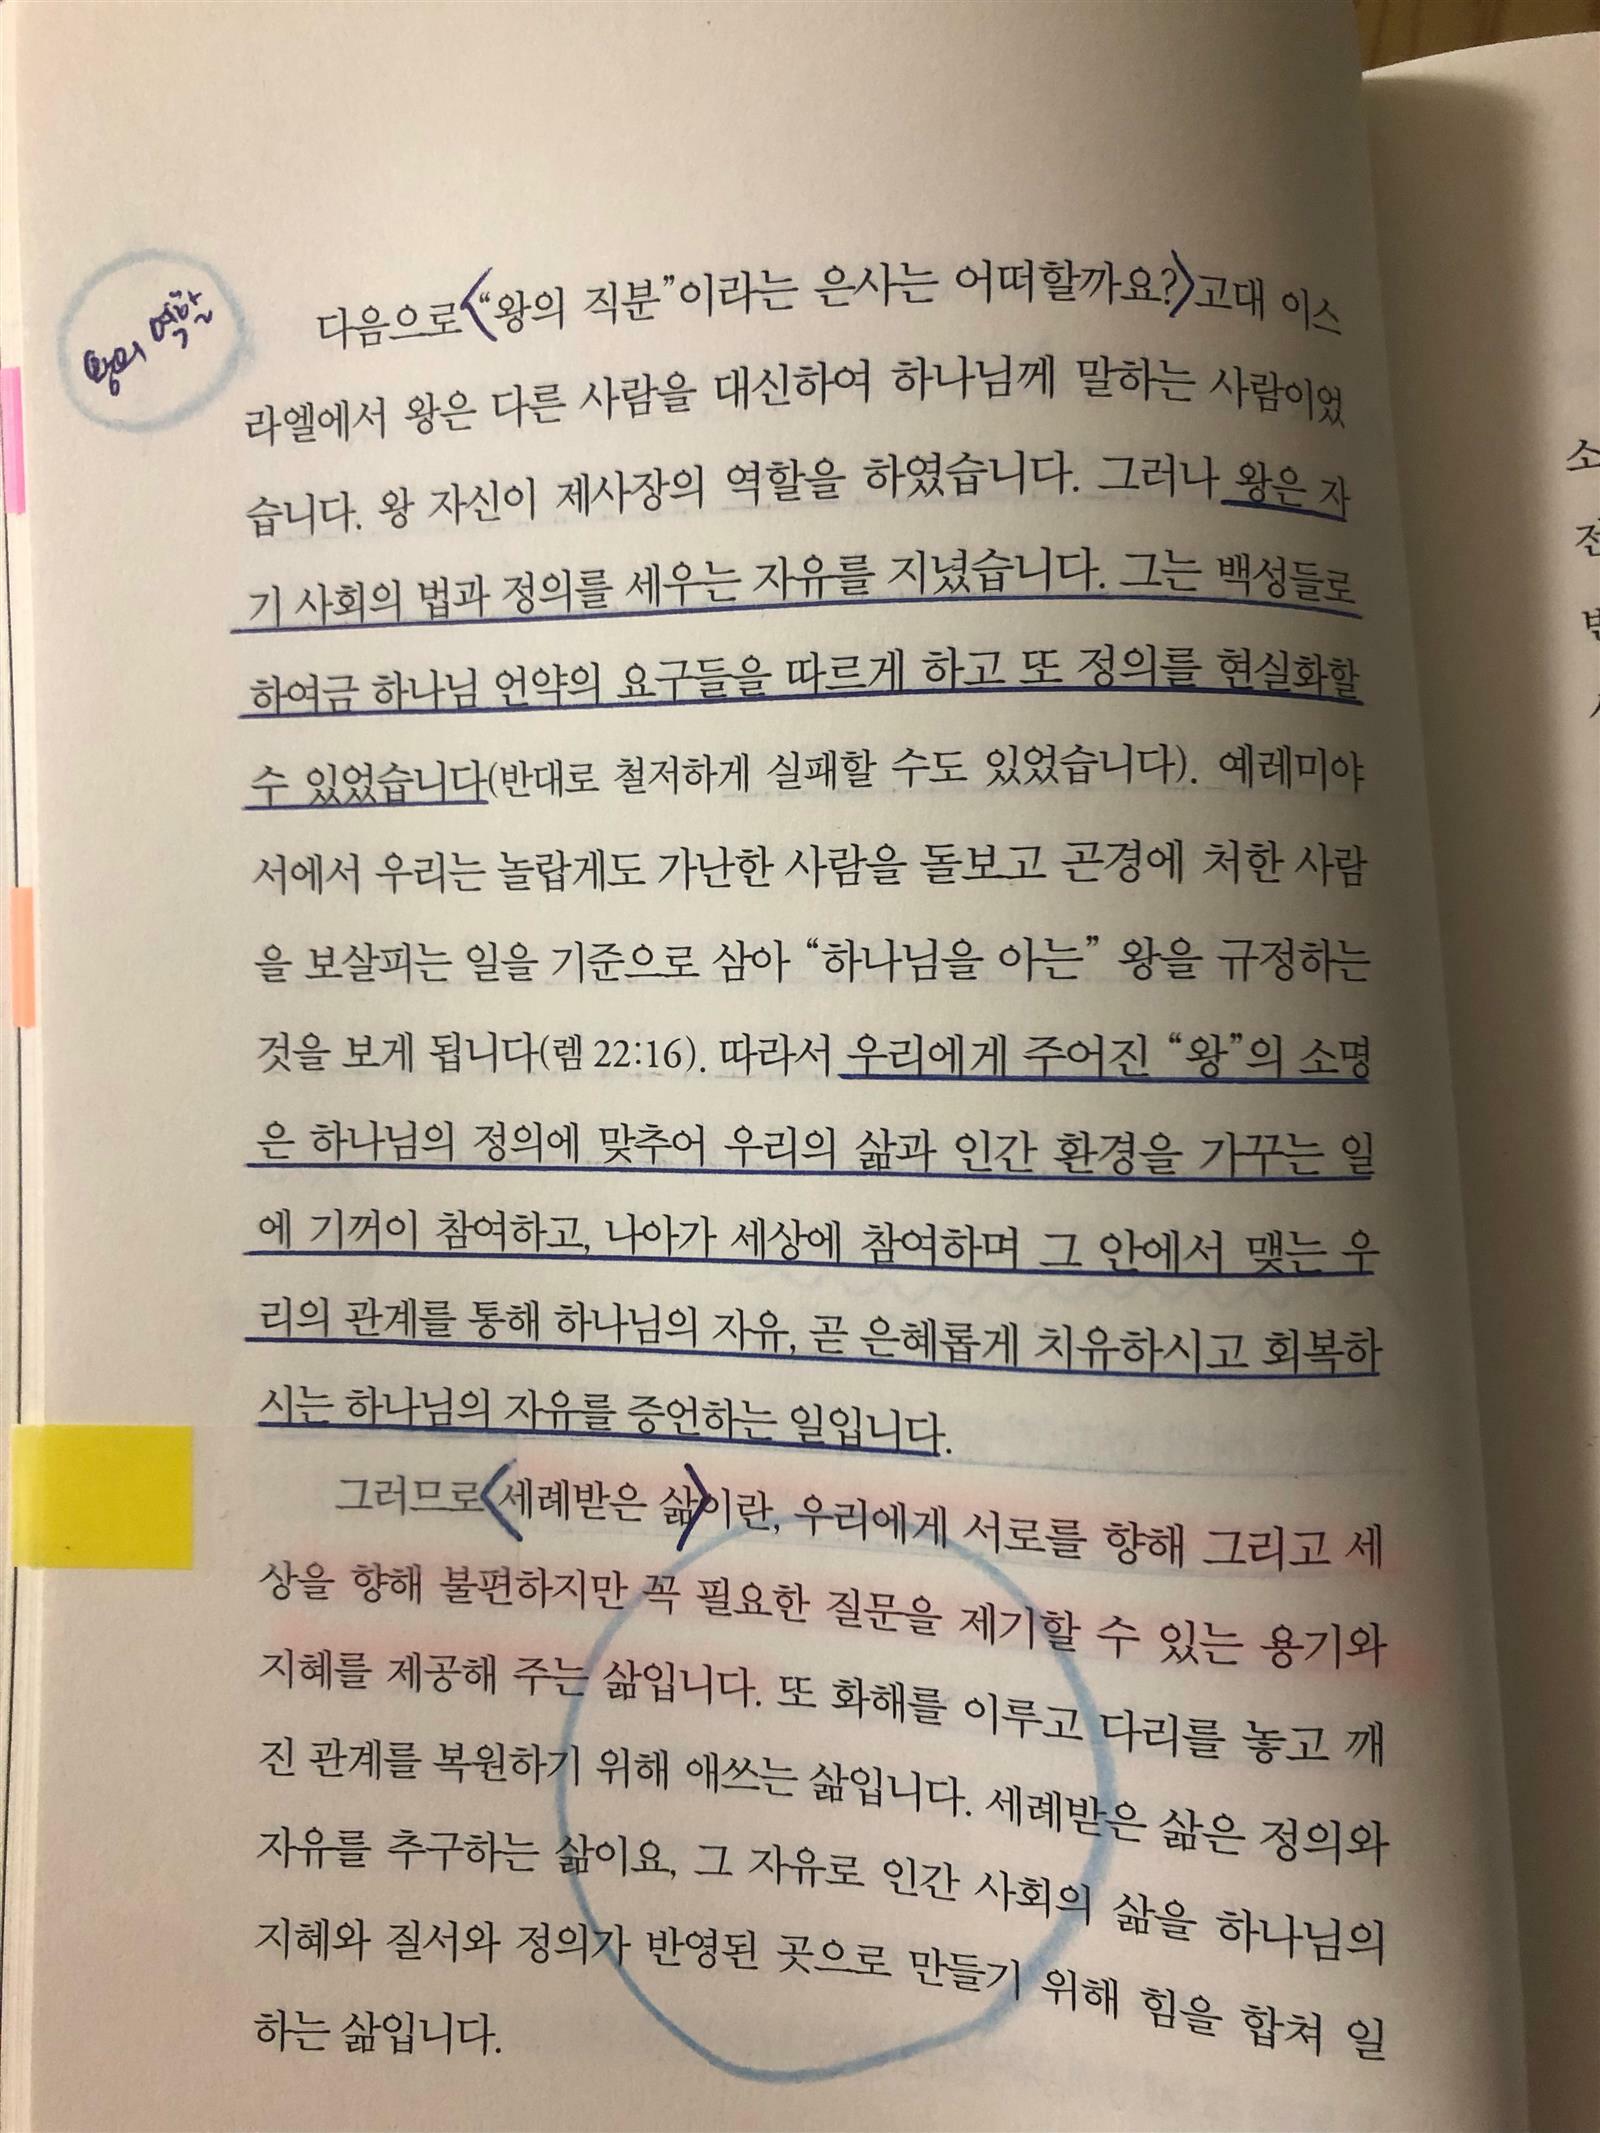 왕의 역할
다음으로 “왕의 직분”이라는 은사는 어떠할까요? 고대 이스
라엘에서 왕은 다른 사람을 대신하여 하나님께 말하는 사람이었
습니다. 왕 자신이 제사장의 역할을 하였습니다. 그러나 왕은 자
기 사회의 법과 정의를 세우는 자유를 지녔습니다. 그는 백성들로
하여금 하나님 언약의 요구들을 따르게 하고 또 정의를 현실화할
수 있었습니다(반대로 철저하게 실패할 수도 있었습니다). 예레미야
서에서 우리는 놀랍게도 가난한 사람을 돌보고 곤경에 처한 사람
을 보살피는 일을 기준으로 삼아 “하나님을 아는” 왕을 규정하는
것을 보게 됩니다(렘 22:16). 따라서 우리에게 주어진 “왕”의 소명
은 하나님의 정의에 맞추어 우리의 삶과 인간 환경을 가꾸는 일
에 기꺼이 참여하고, 나아가 세상에 참여하며 그 안에서 맺는 우
리의 관계를 통해 하나님의 자유, 곧 은혜롭게 치유하시고 회복하
시는 하나님의 자유를 증언하는 일입니다.
그러므로 세례받은 삶이란, 우리에게 서로를 향해 그리고 세
상을 향해 불편하지만 꼭 필요한 질문을 제기할 수 있는 용기와
지혜를 제공해 주는 삶입니다. 또 화해를 이루고 다리를 놓고 깨
진 관계를 복원하기 위해 애쓰는 삶입니다. 세례받은 삶은 정의와
자유를 추구하는 삶이요, 그 자유로 인간 사회의 삶을 하나님의
지혜와 질서와 정의가 반영된 곳으로 만들기 위해 힘을 합쳐 일
하는 삶입니다.
소